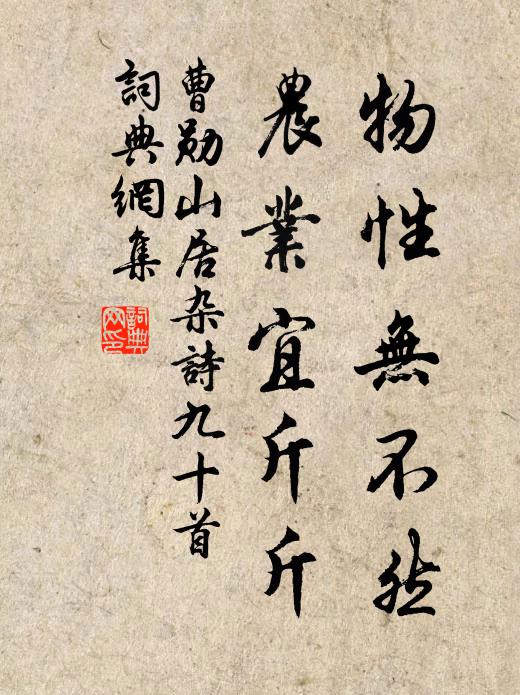 物性無不然
農業宜斤斤
曹勛山居杂詩九十首
詞典網集
詞典网印